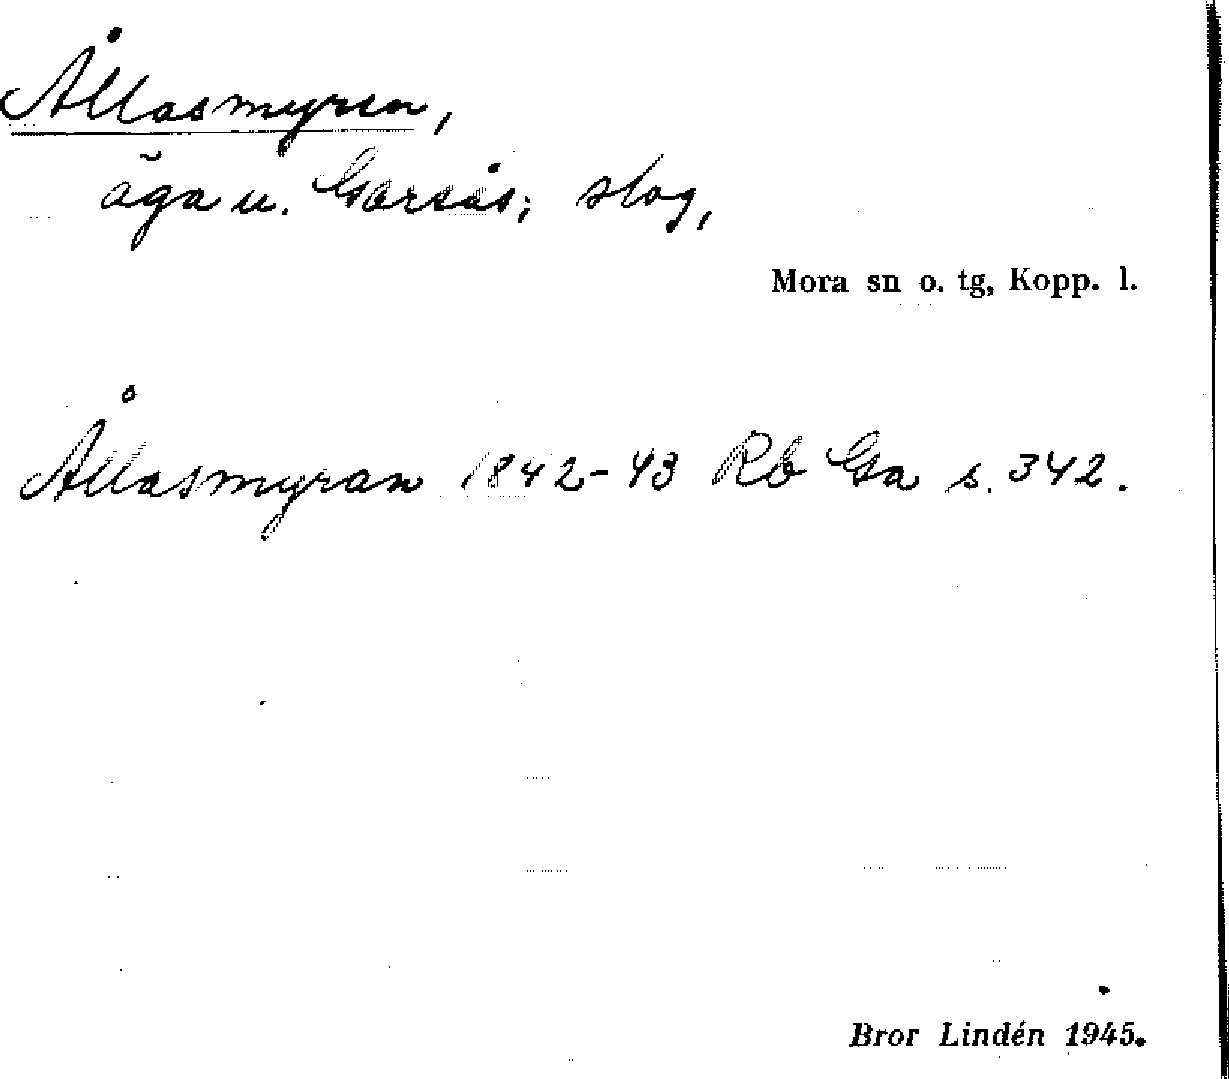 Ållasmyren,
äga u. Garsås; slog,
Mora sn o. tg, Kopp. l.
Ållasmyran 1842-43 Rb Ga s. 342.
Bror Lindén 1945.